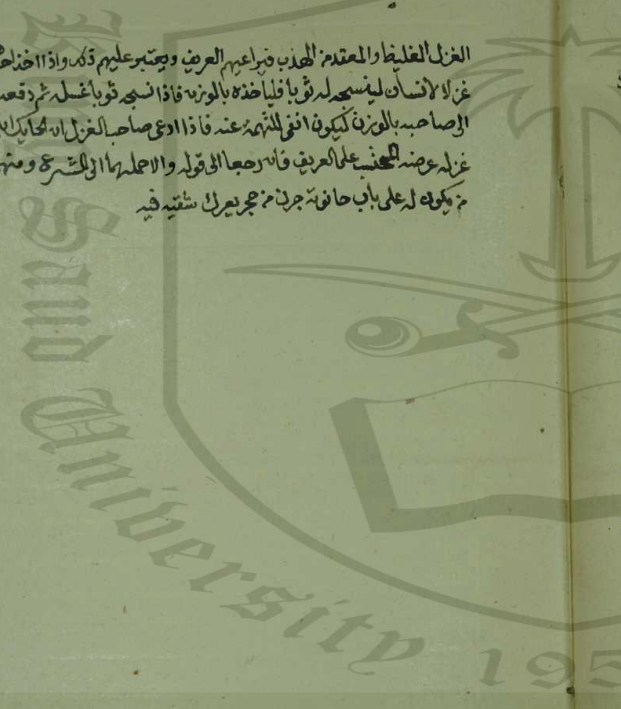 الغزل الغليظ والمعقد من المهذب فيراعيهم العريف ويعتبر عليهم ذلك واذا اخذ
غزلا لانسان لينسجه له ثوبا فلياخذه بالوزن فاذا نسجه ثوبا غسل ثم دفعه
الى صاحبه بالوزن ليكون انفى للتهمة عنه فاذا ادعى صاحب الغزل ان الحايك
غزله عرضه المحتسب على العريف فان رجعا الى قوله والا حملهما الى الشرع ومنهم
من يكون له على باب حانوته جرن من حجر شقته فيه
Saud University 195